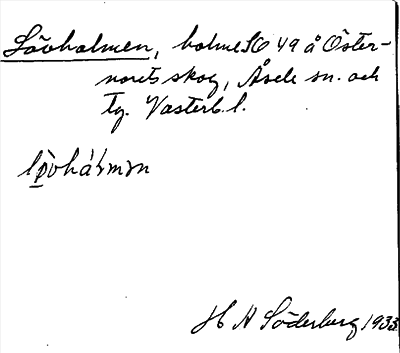 Lövholmen, holme SO 49 å Öster-
norets skog, Åsele sn. och
tg. Västerb. l.
H A Söderberg 1933